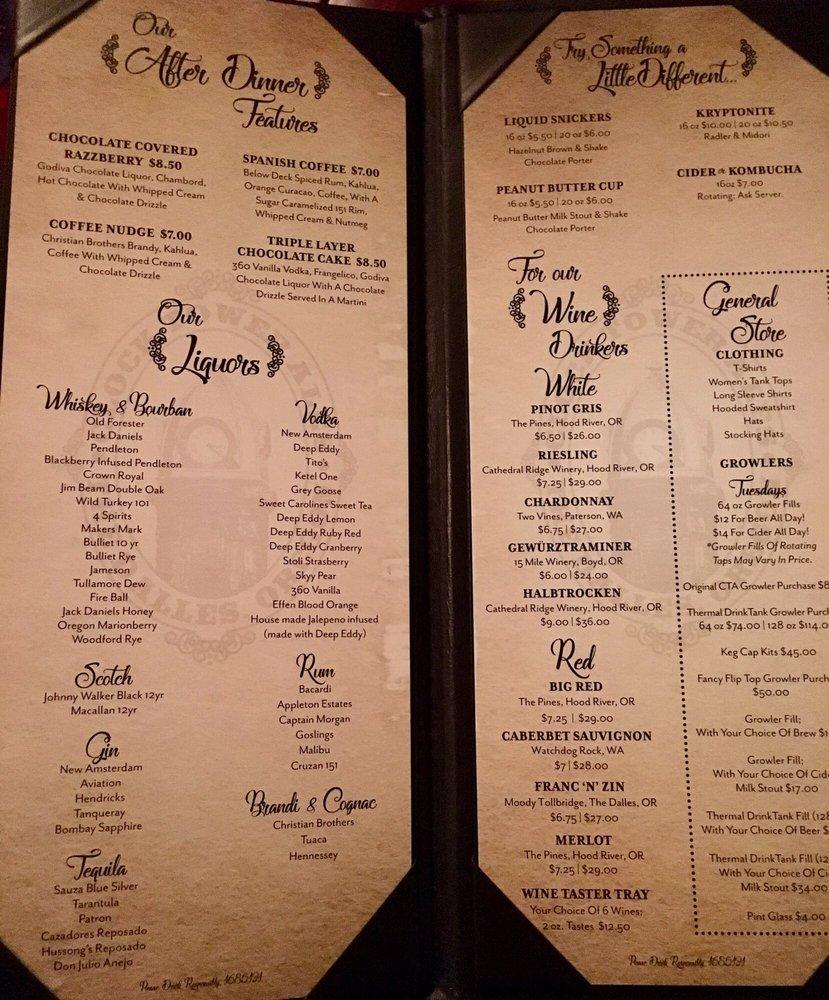 Our
After Dinner
Features
CHOCOLATE COVERED
RAZZBERRY $8.50
Godiva Chocolate Liquor, Chambord,
Hot Chocolate With Whipped Cream
& Chocolate Drizzle
COFFEE NUDGE $7.00
Christian Brothers Brandy, Kahlua,
Coffee With Whipped Cream &
Chocolate Drizzle
SPANISH COFFEE $7.00
Below Deck Spiced Rum, Kahlua,
Orange Curacao, Coffee, With A
Sugar Caramelized 151 Rim,
Whipped Cream & Nutmeg
TRIPLE LAYER
CHOCOLATE CAKE $8.50
360 Vanilla Vodka, Frangelico, Godiva
Chocolate Liquor With A Chocolate
Drizzle Served In A Martini
Our
Liquors
Whiskey & Bourban
Old Forester
Jack Daniels
Pendleton
Blackberry Infused Pendleton
Crown Royal
Jim Beam Double Oak
Wild Turkey 101
4 Spirits
Makers Mark
Bulliet 10 yr
Bulliet Rye
Jameson
Tullamore Dew
Fire Ball
Jack Daniels Honey
Oregon Marionberry
Woodford Rye
Scotch
Johnny Walker Black 12yr
Macallan 12yr
Gin
New Amsterdam
Aviation
Hendricks
Tanqueray
Bombay Sapphire
Tequila
Sauza Blue Silver
Tarantula
Patron
Cazadores Reposado
Hussong's Reposado
Don Julio Anejo
Vodka
New Amsterdam
Deep Eddy
Tito's
Ketel One
Grey Goose
Sweet Carolines Sweet Tea
Deep Eddy Lemon
Deep Eddy Ruby Red
Deep Eddy Cranberry
Stoli Strasberry
Skyy Pear
360 Vanilla
Effen Blood Orange
House made Jalepeno infused
(made with Deep Eddy)
Rum
Bacardi
Appleton Estates
Captain Morgan
Goslings
Malibu
Cruzan 151
Brandi & Cognac
Christian Brothers
Tuaca
Hennessey
Please Drink Responsibly, 1685121
Try Something a
Little Different...
LIQUID SNICKERS
16 oz $5.50 | 20 oz $6.00
Hazelnut Brown & Shake
Chocolate Porter
PEANUT BUTTER CUP
16 oz $5.50 | 20 oz $6.00
Peanut Butter Milk Stout & Shake
Chocolate Porter
KRYPTONITE
16 oz $10.00 | 20 oz $10.50
Radler & Midori
CIDER & KOMBUCHA
16oz $7.00
Rotating: Ask Server.
For our
Wine
Drinkers
White
PINOT GRIS
The Pines, Hood River, OR
$6.50 | $26.00
RIESLING
Cathedral Ridge Winery, Hood River, OR
$7.25 | $29.00
CHARDONNAY
Two Vines, Paterson, WA
$6.75 | $27.00
GEWÜRZTRAMINER
15 Mile Winery, Boyd, OR
$6.00 | $24.00
HALBTROCKEN
Cathedral Ridge Winery, Hood River, OR
$9.00 | $36.00
Red
BIG RED
The Pines, Hood River, OR
$7.25 | $29.00
CABERBET SAUVIGNON
Watchdog Rock, WA
$7 | $28.00
FRANC 'N' ZIN
Moody Tollbridge, The Dalles, OR
$6.75 | $27.00
MERLOT
The Pines, Hood River, OR
$7.25 | $29.00
WINE TASTER TRAY
Your Choice Of 6 Wines;
2 oz. Tastes $12.50
General
Store
CLOTHING
T-Shirts
Women's Tank Tops
Long Sleeve Shirts
Hooded Sweatshirt
Hats
Stocking Hats
GROWLERS
Tuesdays
64 oz Growler Fills
$12 For Beer All Day!
$14 For Cider All Day!
*Growler Fills Of Rotating
Taps May Vary In Price.
Original CTA Growler Purchase $8
Thermal DrinkTank Growler Purch
64 oz $74.00 | 128 oz $114.0
Keg Cap Kits $45.00
Fancy Flip Top Growler Purch
$50.00
Growler Fill;
With Your Choice Of Brew $1
Growler Fill;
With Your Choice Of Cid
Milk Stout $17.00
Thermal DrinkTank Fill (128
With Your Choice Of Beer $
Thermal DrinkTank Fill (12
With Your Choice Of Ci
Milk Stout $34.00
Pint Glass $4.00
Please Drink Responsibly, 1685121